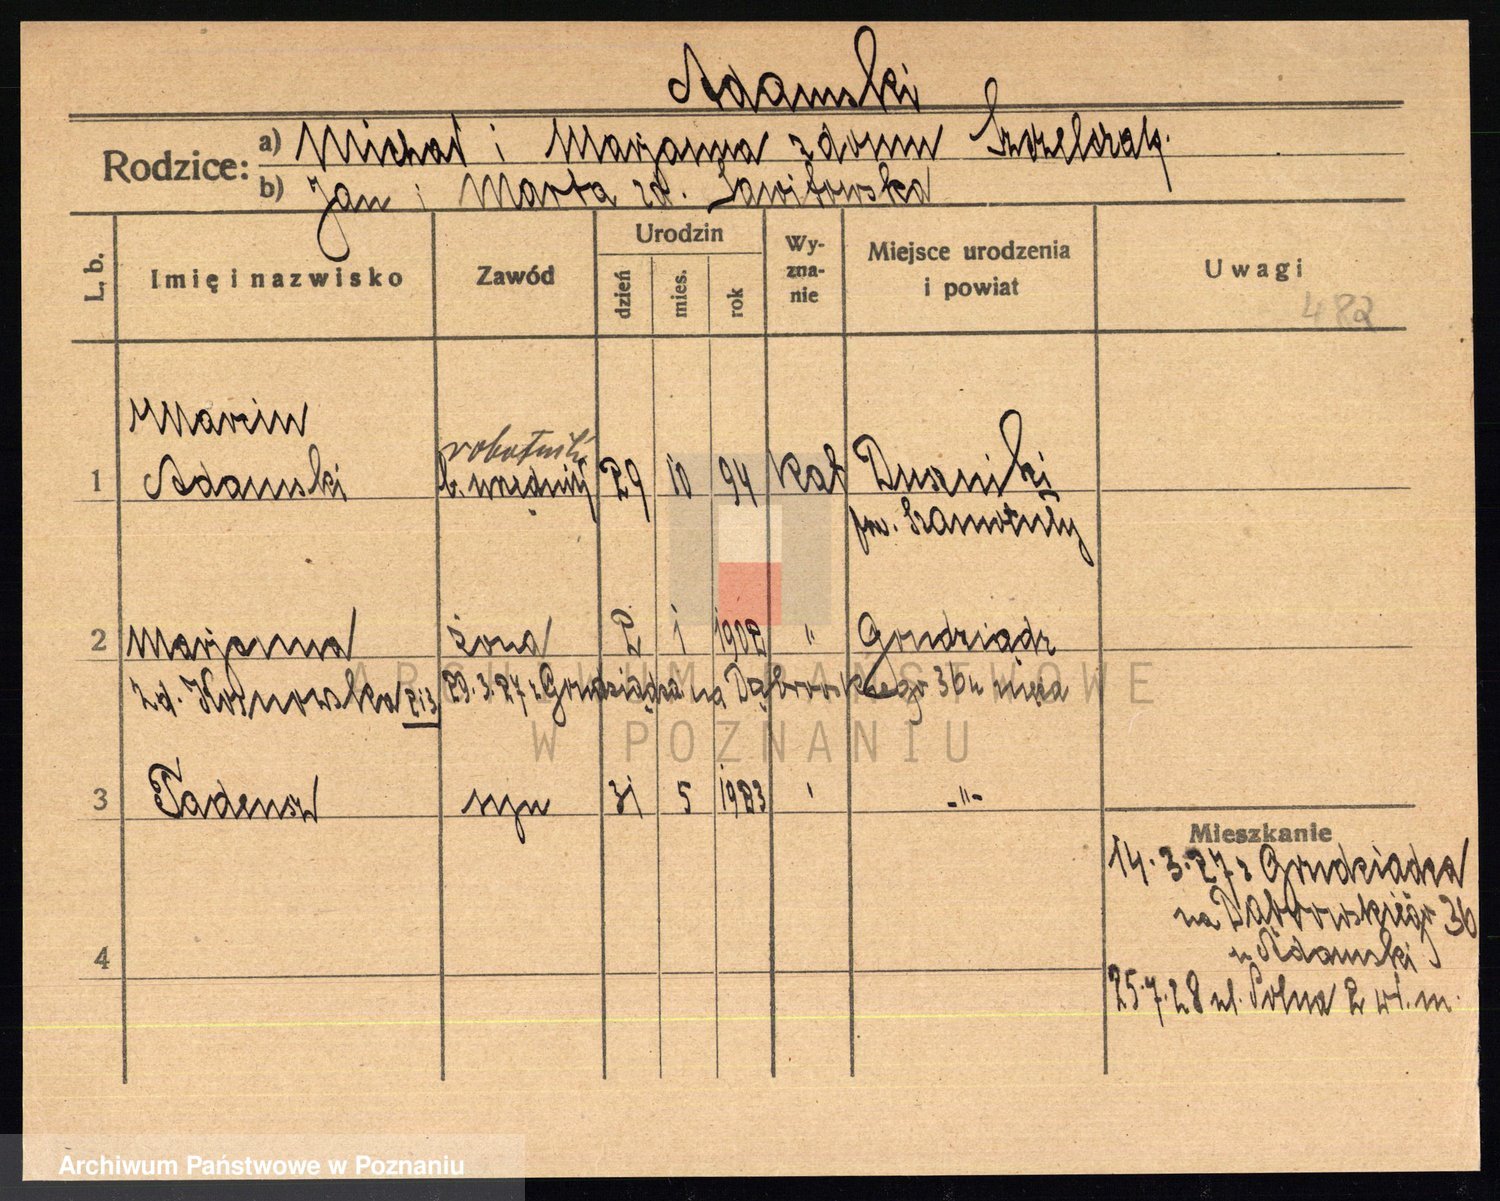 Adamski
Rodzice: a) Michał i Marjanna z domu
b) Jan i Marta zd. Sawitowska
L. b. Imię i nazwisko Zawód Urodzin dzień mies. rok Wy-zna-nie Miejsce urodzenia i powiat Uwagi
482
Marcin
robotnik
1 Adamski b. urzędnik 29 10 94 Kat Duszniki
pow. Szamotuły
2 Marjanna żona 2 1 1902 " Grudziądz
zd. 2 i 3 29.3.27 z Grudziądza na Dąbrowskiego 36 u męża
3 Tadeusz syn 31 5 1923 ' -"-
Mieszkanie
14.3.27 z Grudziądza
na Dąbrowskiego 36
4 u Adamski
25.7.28 ul. Polna 2 wł. m.
ARCHIWUM PAŃSTWOWE
W POZNANIU
Archiwum Państwowe w Poznaniu